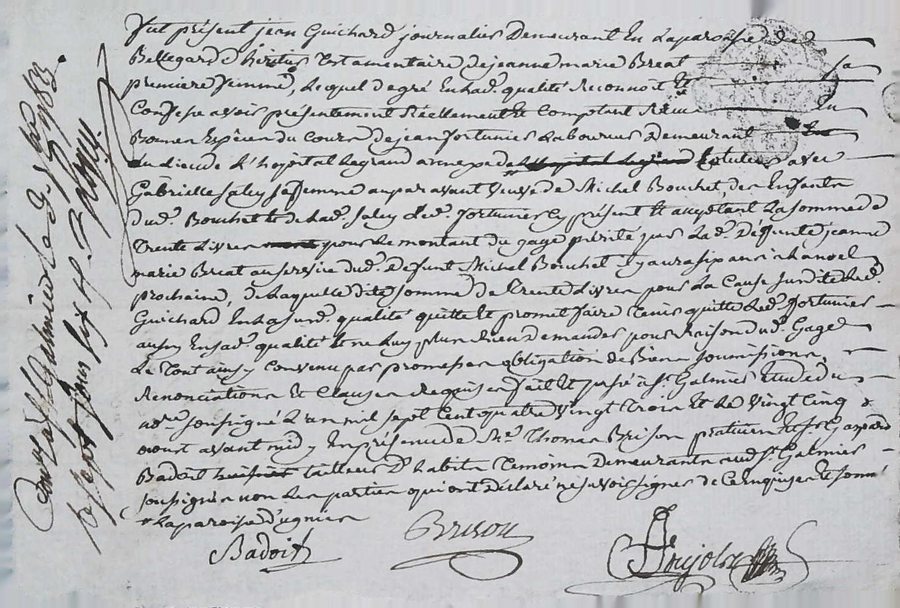 Fut présent jean Guichard journalier Demeurant En Laparoisse de
Bellegarde héritier testamentaire de jeanne marie Breat sa
premiere femme, Lequel de gré En lad. qualité Reconnoit Et
Confesse avoir présentement Réellement Et Comptant Reçu En
Bonnes Espèces du Cours de jean fortunier Laboureur Demeurant
au Lieu de L'hopital Legrand tuteur avec
Gabrielle Saley sa femme auparavant Veuve de Michel Bouchet, des Enfants
dud. Bouchet Et de lad. Saley Led. fortunier Cy présent Et acceptant La somme de
trente Livres pour Le montant du gage mérité par Lad. Défunte jeanne
marie Breat au service dud. défunt Michel Bouchet il y aura six ans à la noel
prochaine, de Laquelle dite somme de trente Livres pour La Cause susdite Led.
Guichard En lad. qualité quitte Et promet faire tenir quitte Led. fortunier
aussy En sad. qualité Et ne luy plus Rien demander pour Raison dud. Gage
Le tout ainsy Convenu par promesses obligation de Biens soumissions,
Renonciations Et Clauses Requises fait Et passé à St. Galmier Etude du
no.re soussigné L'an mil sept Cent quatre Vingt trois Et Le Vingt Cinq
aout avant midy En présence de Sr. Thomas Brison praticien Et Sr. Gaspard
Badoit tailleur D'habits témoins Demeurants aud. St. Galmier
soussignés non Les parties qui ont Déclaré ne savoir signer de Ce Enquises Et sommées
Laparoisse d'
Badoit Brison Pujolas
St. Galmier Le 7bre 1783.